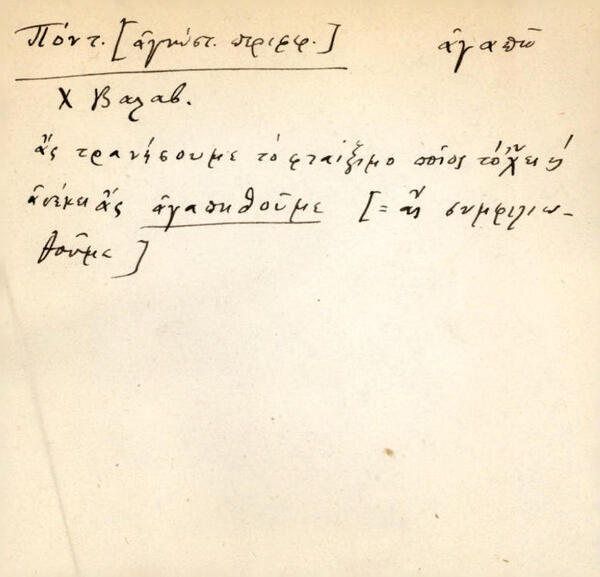 Πόντ. [ἀγνώστ. περιφρ.] ἀγαπῶ
Χ Βαλαβ.
ἂς τρανήσουμε τὸ φταίξιμο ποῖος τὄχει ἢ
ἂς ἀγαπηθοῦμε [= ἂς συμφιλιω-
θοῦμε]